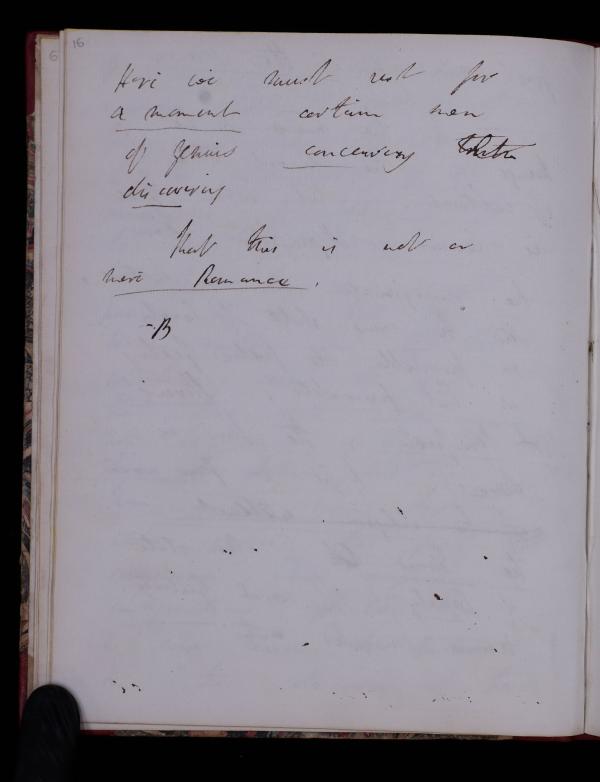 16
6
Here we must rest for
a moment certain men
of genius conceiving
discovering
that this is not a
mere Romance.
B